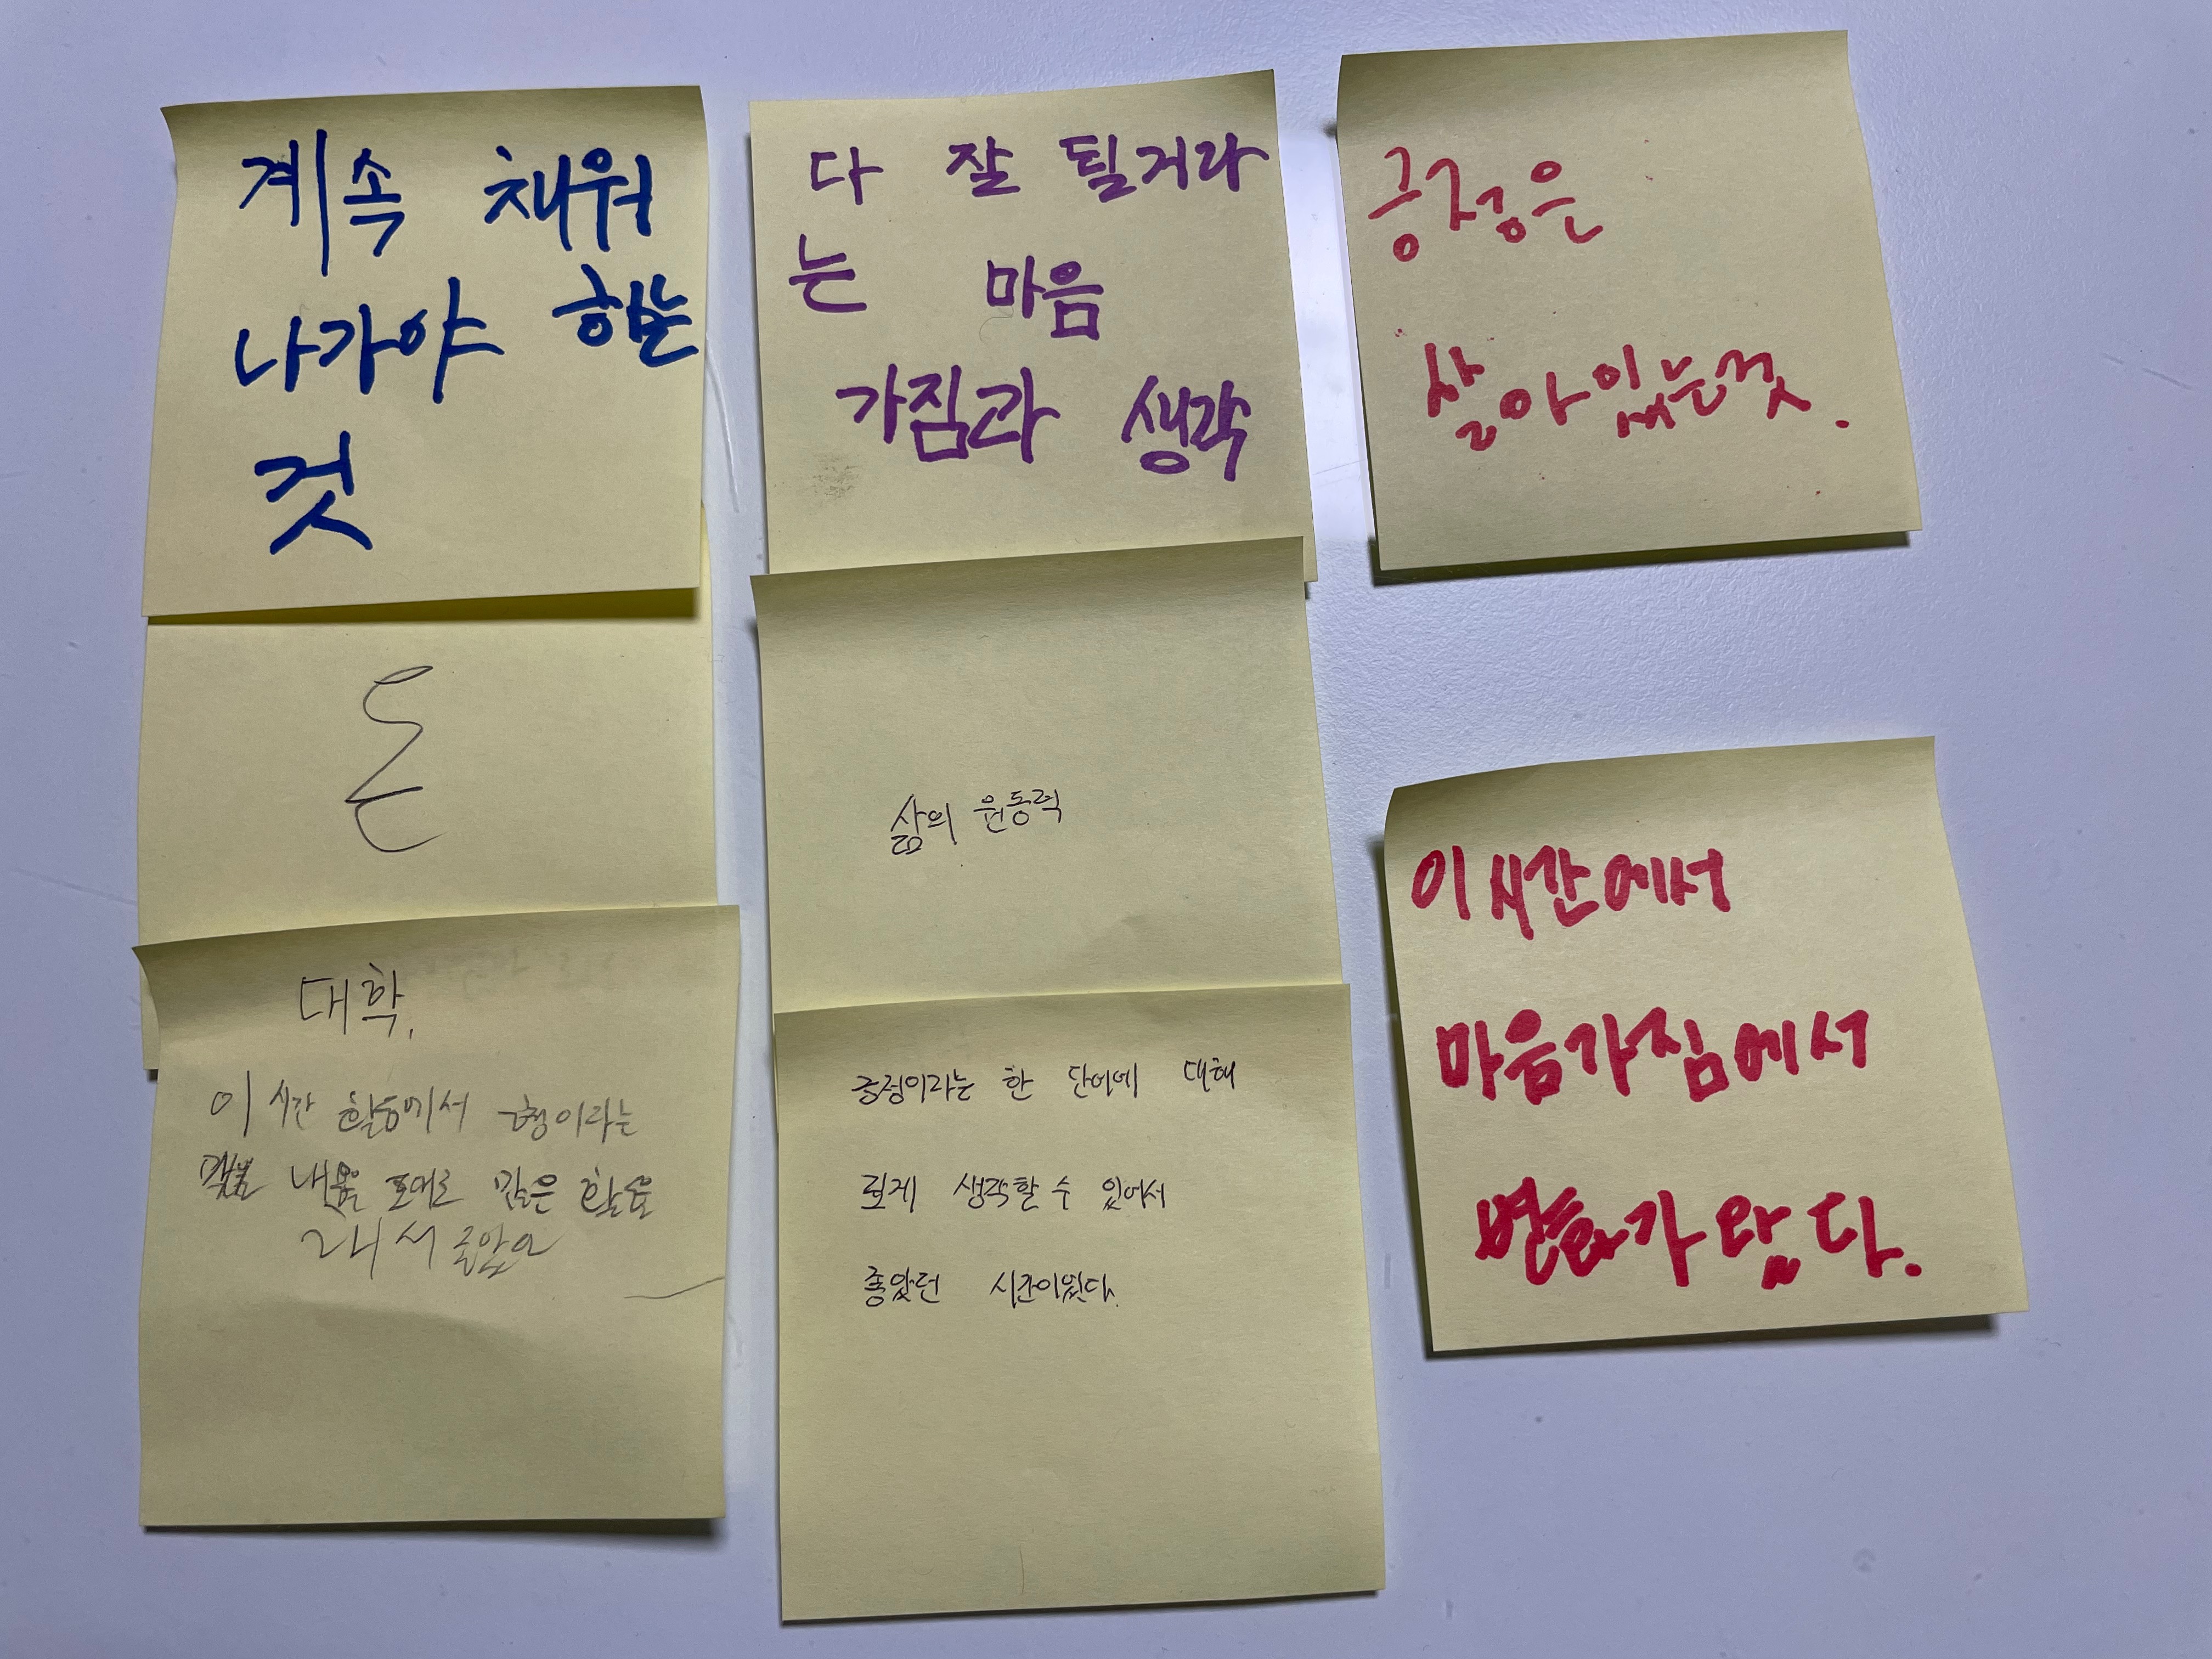 계속 채워
나가야 하는
것
돈
대학.
이 시간 활동에서 이라는
내용을 토대로 많은 활동
좋았요
다 잘 될거라
는 마음
가짐과 생각
삶의 원동력
긍정이라는 한 단어에 대해
깊게 생각할 수 있어서
좋았던 시간이었다.
긍정은
살아있는것.
이 시간에서
마음가짐에서
변화가 왔다.